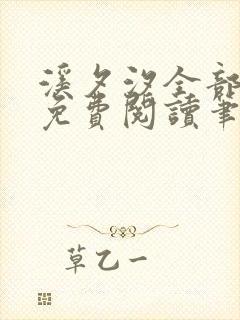 溪夕汐全部
免費閱讀筆
草乙一